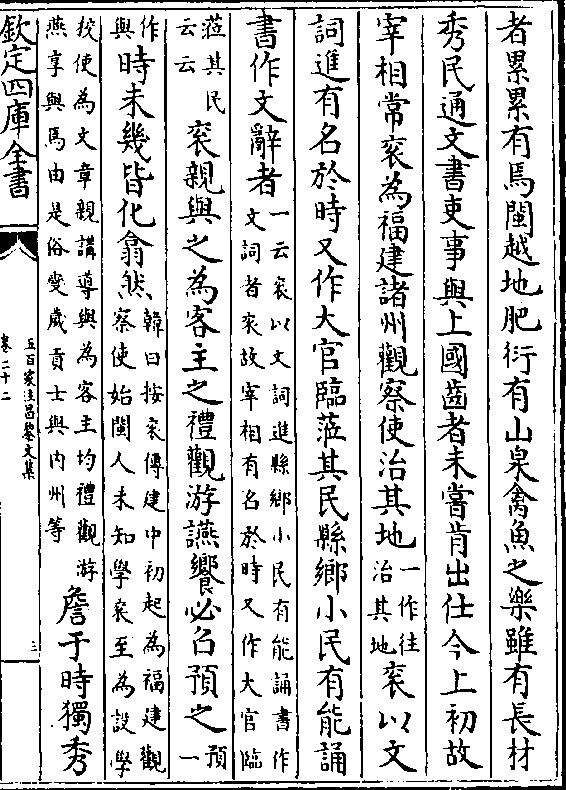 者累累有焉閩越地肥衍有山泉禽魚之樂雖有長材
秀民通文書吏事與上國齒者未嘗肯出仕今上初故
宰相常衮為福建諸州觀察使治其地一作往治其地衮以文
詞進有名於時又作大官臨蒞其民縣鄉小民有能誦
書作文辭者一云衮以文詞進縣鄉小民有能誦書作文詞者衮故宰相有名於時又作大官臨
蒞其民云云衮親與之為客主之禮觀游讌饗必召預之預一
作與時未幾皆化翕然韓曰按衮傳建中初起為福建觀察使始閩人未知學衮至為設學
校使為文章親講導與為客主均禮觀游燕享與焉由是俗變歲貢士與内州等詹于時獨秀
欽定四庫全書
五百家注昌黎文集
卷二十二
三